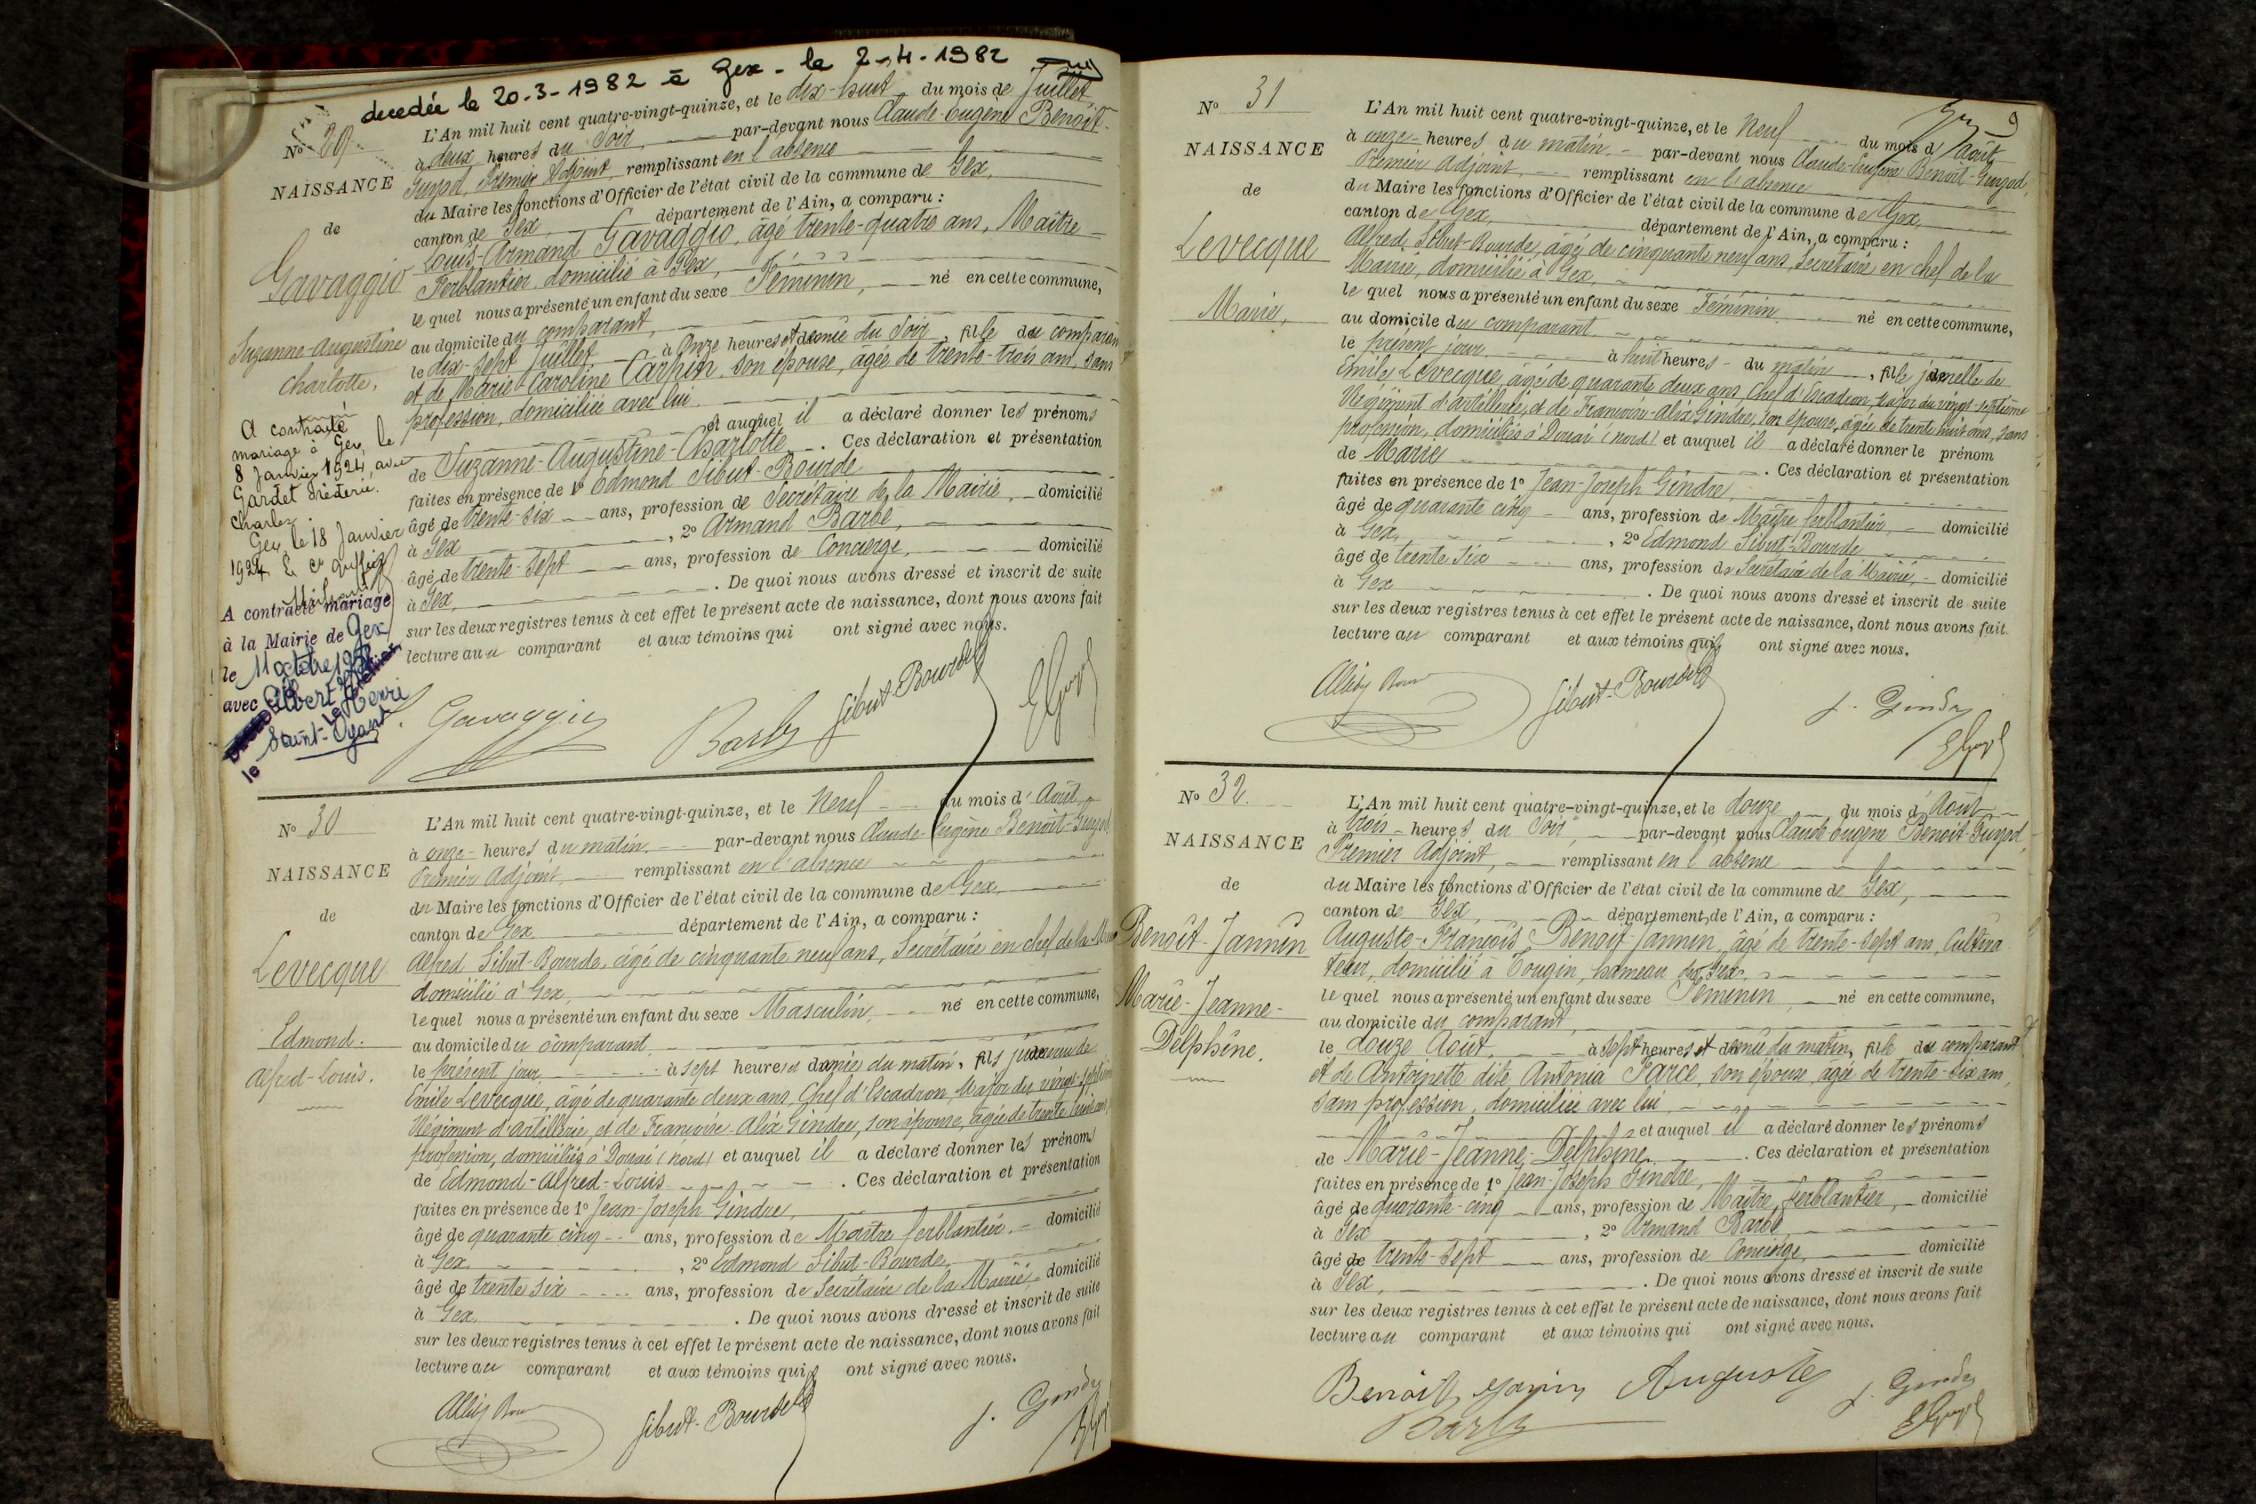 decedée le 20-3-1982 à Gex - le 2-4-1982
No 29
NAISSANCE
de
Gavaggio
Suzanne-Augustine
Charlotte.
A contracté
mariage à Gex, le
8 Janvier 1924, avec
Gardet Fréderic
Charles.
Gex, le 18 Janvier
1924
A contracté mariage
à la Mairie de Gex
le 11 octobre
avec Albert
Henri
L'An mil huit cent quatre-vingt-quinze, et le dix-huit du mois de Juillet,
à deux heures du Soir, par-devant nous Claude-Eugène Benoît-
Guyod, Premier Adjoint, remplissant en l'absence
du Maire les fonctions d'Officier de l'état civil de la commune de Gex,
canton de Gex, département de l'Ain, a comparu :
Louis-Armand Gavaggio, âgé trente-quatre ans, Maître
Ferblantier, domicilié à Gex,
le quel nous a présenté un enfant du sexe Féminin, né en cette commune,
au domicile du comparant,
le dix-sept Juillet à Onze heures et demie du Soir, fille du comparant
et de Marie-Caroline Carpin, son épouse, agée de trente-trois ans, sans
profession, domiciliée avec lui.
et auquel il a déclaré donner les prénoms
de Suzanne-Augustine-Charlotte. Ces déclaration et présentation
faites en présence de 1o Edmond Sibut-Bourde
âgé de trente-six ans, profession de Secrétaire de la Mairie, domicilié
à Gex, 2o Armand Barbe,
âgé de trente-sept ans, profession de Concierge, domicilié
à Gex, . De quoi nous avons dressé et inscrit de suite
sur les deux registres tenus à cet effet le présent acte de naissance, dont nous avons fait
lecture au comparant et aux témoins qui ont signé avec nous.
L. Gavaggio Barbe Sibut-Bourde EGuyod
No 30
NAISSANCE
de
Levecque
Edmond.
Alfred-Louis.
L'An mil huit cent quatre-vingt-quinze, et le Neuf du mois d'Août,
à onze heures du matin. par-devant nous Claude-Eugène Benoît-Guyod,
Premier Adjoint, remplissant en l'absence
du Maire les fonctions d'Officier de l'état civil de la commune de Gex,
canton de Gex département de l'Ain, a comparu :
Alfred Sibut-Bourde, âgé de cinquante neuf ans, Secrétaire en chef de la Mairie
domicilié à Gex,
le quel nous a présenté un enfant du sexe Masculin, né en cette commune,
au domicile du comparant.
le présent jour, à sept heures et demie du matin, fils jumeau de
Emile Levecque, âgé de quarante deux ans, Chef d'Escadron, Major du vingt-septième
Régiment d'artillerie, et de Françoise-Alix Gindre, son épouse, âgée de trente huit ans, sans
profession, domiciliés à Douai (nord) et auquel il a déclaré donner les prénoms
de Edmond-Alfred-Louis. Ces déclaration et présentation
faites en présence de 1o Jean-Joseph Gindre,
âgé de quarante cinq ans, profession de Maître ferblantier, domicilié
à Gex, 2o Edmond Sibut-Bourde
âgé de trente six ans, profession de Secrétaire de la Mairie, domicilié
à Gex. . De quoi nous avons dressé et inscrit de suite
sur les deux registres tenus à cet effet le présent acte de naissance, dont nous avons fait
lecture au comparant et aux témoins qui ont signé avec nous.
Sibut-Bourde J. Gindre
9
No 31
NAISSANCE
de
Levecque
Marie,
L'An mil huit cent quatre-vingt-quinze, et le Neuf du mois d'août,
à onze heures du matin. par-devant nous Claude-Eugène Benoît-Guyod,
Premier Adjoint, remplissant en l'absence
du Maire les fonctions d'Officier de l'état civil de la commune de Gex,
canton de Gex, département de l'Ain, a comparu :
Alfred Sibut-Bourde, âgé de cinquante neuf ans, Secrétaire en chef de la
Mairie, domicilié à Gex,
le quel nous a présenté un enfant du sexe Féminin né en cette commune,
au domicile du comparant
le présent jour à huit heures du matin, fille jumelle de
Emile Levecque, âgé de quarante deux ans, Chef d'Escadron, Major du vingt-septième
Régiment d'artillerie, et de Françoise-Alix Gindre, son épouse, âgée de trente huit ans, sans
profession, domiciliés à Douai (nord) et auquel il a déclaré donner le prénom
de Marie . Ces déclaration et présentation
faites en présence de 1o Jean-Joseph Gindre,
âgé de quarante cinq ans, profession de Maître ferblantier, domicilié
à Gex, 2o Edmond Sibut-Bourde
âgé de trente six ans, profession de Secrétaire de la Mairie, domicilié
à Gex . De quoi nous avons dressé et inscrit de suite
sur les deux registres tenus à cet effet le présent acte de naissance, dont nous avons fait
lecture au comparant et aux témoins qui ont signé avec nous.
Sibut-Bourde J. Gindre EGuyod
No 32.
NAISSANCE
de
Benoît-Jannin
Marie-Jeanne-
Delphine.
L'An mil huit cent quatre-vingt-quinze, et le douze du mois d'Août
à trois heures du Soir, par-devant nous Claude Eugène Benoît-Guyod,
Premier Adjoint, remplissant en l'absence
du Maire les fonctions d'Officier de l'état civil de la commune de Gex,
canton de Gex, département de l'Ain, a comparu :
Auguste-François Benoît-Jannin, âgé de trente-sept ans, Cultiva
teur, domicilié à Tougin, hameau de Gex,
le quel nous a présenté un enfant du sexe Féminin, né en cette commune,
au domicile du comparant,
le douze Août, à sept heures et demie du matin, fille du comparant
et de Antoinette dite Antonia Parce, son épouse, agée de trente-six ans,
sans profession, domiciliée avec lui,
et auquel il a déclaré donner les prénoms
de Marie-Jeanne-Delphine. . Ces déclaration et présentation
faites en présence de 1o Jean-Joseph Gindre,
âgé de quarante-cinq ans, profession de Maître ferblantier, domicilié
à Gex, 2o Armand Barbe
âgé de trente-sept ans, profession de Concierge, domicilié
à Gex, . De quoi nous avons dressé et inscrit de suite
sur les deux registres tenus à cet effet le présent acte de naissance, dont nous avons fait
lecture au comparant et aux témoins qui ont signé avec nous.
Benoit Janin Auguste J. Gindre
Barbe EGuyod